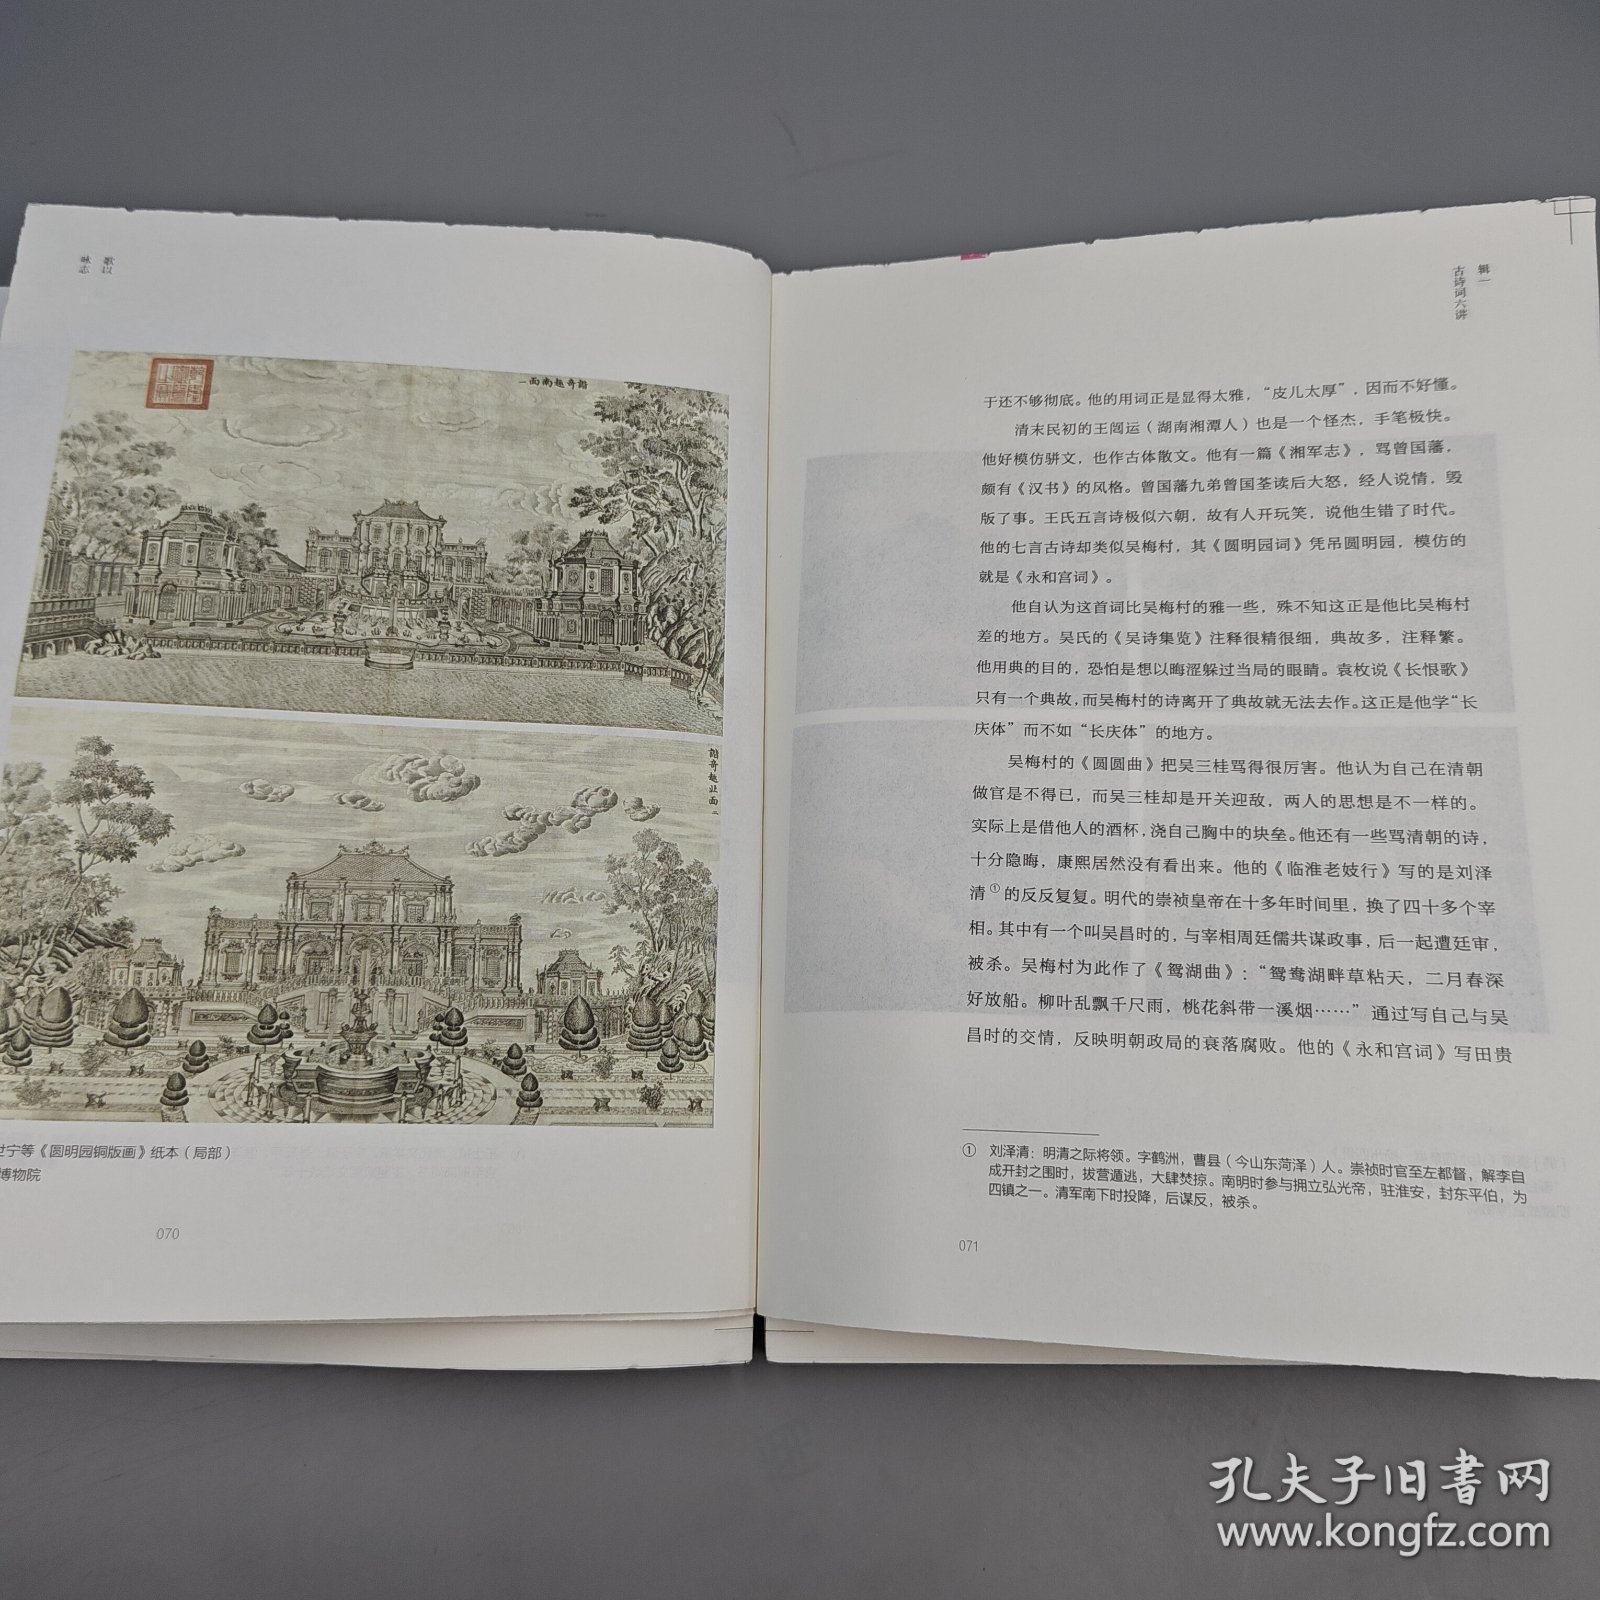 歌以
咏志
諧奇趣南面一
諧奇趣北面二
世宁等《圆明园铜版画》纸本（局部）
博物院
070
辑一
古诗词六讲
于还不够彻底。他的用词正是显得太雅，“皮儿太厚”，因而不好懂。
清末民初的王闿运（湖南湘潭人）也是一个怪杰，手笔极快。
他好模仿骈文，也作古体散文。他有一篇《湘军志》，骂曾国藩，
颇有《汉书》的风格。曾国藩九弟曾国荃读后大怒，经人说情，毁
版了事。王氏五言诗极似六朝，故有人开玩笑，说他生错了时代。
他的七言古诗却类似吴梅村，其《圆明园词》凭吊圆明园，模仿的
就是《永和宫词》。
他自认为这首词比吴梅村的雅一些，殊不知这正是他比吴梅村
差的地方。吴氏的《吴诗集览》注释很精很细，典故多，注释繁。
他用典的目的，恐怕是想以晦涩躲过当局的眼睛。袁枚说《长恨歌》
只有一个典故，而吴梅村的诗离开了典故就无法去作。这正是他学“长
庆体”而不如“长庆体”的地方。
吴梅村的《圆圆曲》把吴三桂骂得很厉害。他认为自己在清朝
做官是不得已，而吴三桂却是开关迎敌，两人的思想是不一样的。
实际上是借他人的酒杯，浇自己胸中的块垒。他还有一些骂清朝的诗，
十分隐晦，康熙居然没有看出来。他的《临淮老妓行》写的是刘泽
清①的反反复复。明代的崇祯皇帝在十多年时间里，换了四十多个宰
相。其中有一个叫吴昌时的，与宰相周廷儒共谋政事，后一起遭廷审，
被杀。吴梅村为此作了《鸳湖曲》：“鸳鸯湖畔草粘天，二月春深
好放船。柳叶乱飘千尺雨，桃花斜带一溪烟……”通过写自己与吴
昌时的交情，反映明朝政局的衰落腐败。他的《永和宫词》写田贵
① 刘泽清：明清之际将领。字鹤洲，曹县（今山东菏泽）人。崇祯时官至左都督，解李自
成开封之围时，拔营遁逃，大肆焚掠。南明时参与拥立弘光帝，驻淮安，封东平伯，为
四镇之一。清军南下时投降，后谋反，被杀。
071
孔夫子旧书网
www.kongfz.com